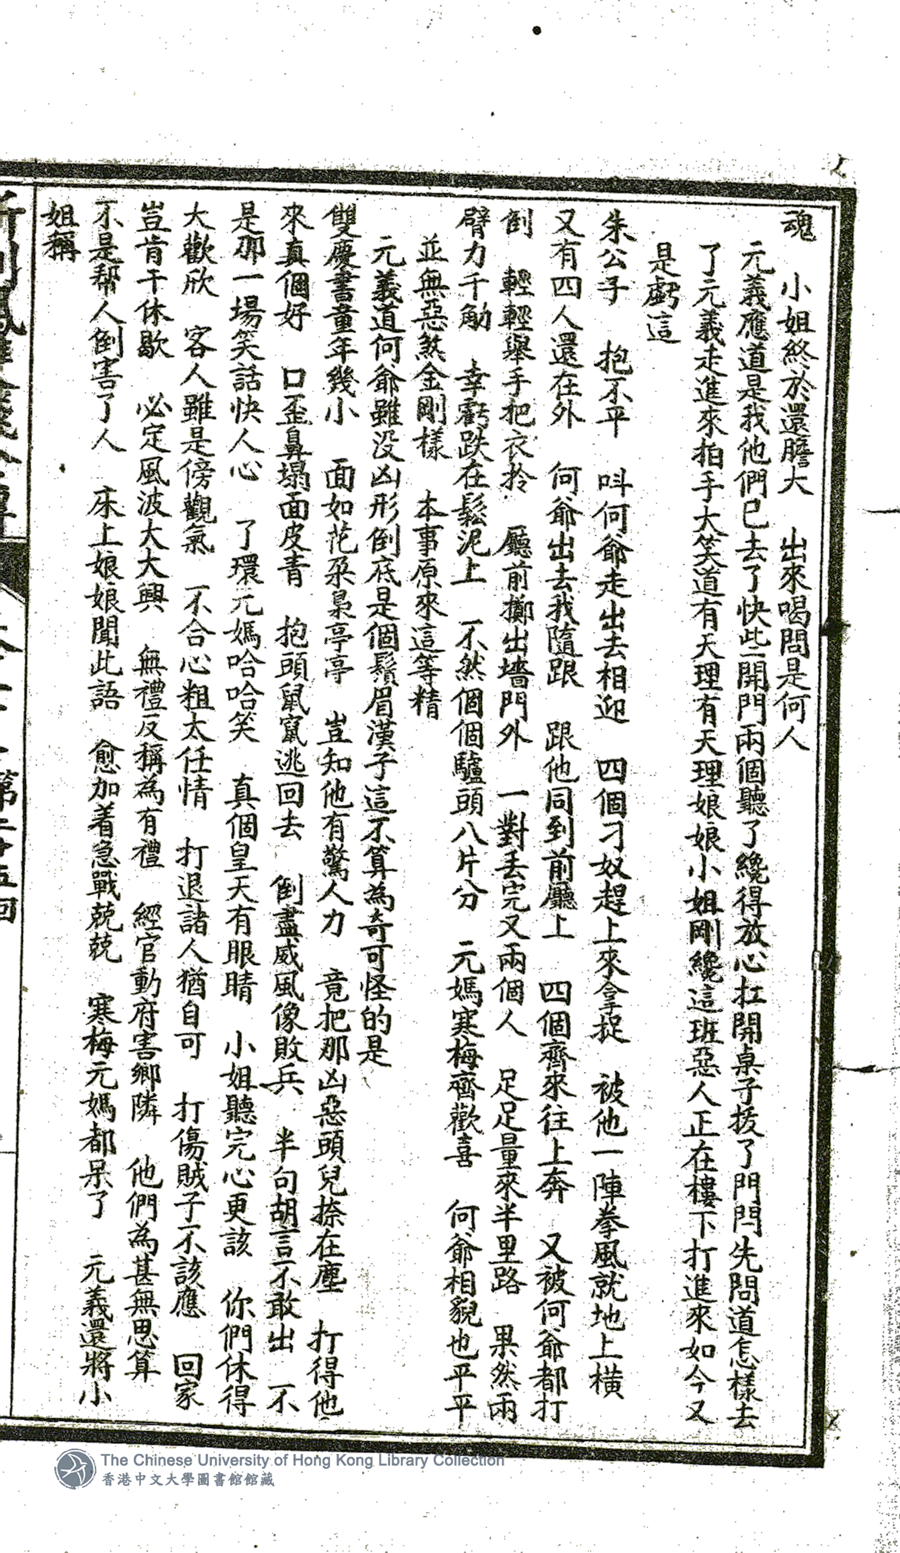 魂　小姐終於還膽大　出來喝問是何人
元義應道是我他們已去了快些開門兩個聽了纔得放心扛開桌子拔了門閂先問道怎樣去
了元義走進來拍手大笑道有天理有天理娘娘小姐剛纔這班惡人正在樓下打進來如今又
是虧這
朱公子　抱不平　呌何爺走出去相迎　四個刁奴趕上來拿捉　被他一陣拳風就地上橫
又有四人還在外　何爺出去我隨跟　跟他同到前廳上　四個齊來往上奔　又被何爺都打
倒　輕輕舉手把衣拎　廳前擲出墻門外　一對丢完又兩個人　足足量來半里路　果然兩
臂力千觔　幸虧跌在鬆泥上　不然個個驢頭八片分　元媽寒梅齊歡喜　何爺相貌也平平
並無惡煞金剛樣　本事原來這等精
元義道何爺雖没凶形倒底是個鬚眉漢子這不算為奇可怪的是
雙慶書童年幾小　面如花朶梟亭亭　豈知他有驚人力　竟把那凶惡頭兒捺在塵　打得他
來真個好　口歪鼻塌面皮青　抱頭鼠竄逃回去　倒盡威風像敗兵　半句胡言不敢出　不
是那一場笑話快人心　了環元媽哈哈笑　真個皇天有眼睛　小姐聽完心更該　你們休得
大歡欣　客人雖是傍觀氣　不合心粗太任情　打退諸人猶自可　打傷賊子不該應　回家
豈肯干休歇　必定風波大大興　無禮反稱為有禮　經官動府害鄉隣　他們為甚無思算
不是帮人倒害了人　床上娘娘聞此語　愈加着急戰兢兢　寒梅元媽都呆了　元義還將小
姐稱
第二十五回
The Chinese University of Hong Kong Library Collection
香港中文大學圖書館館藏